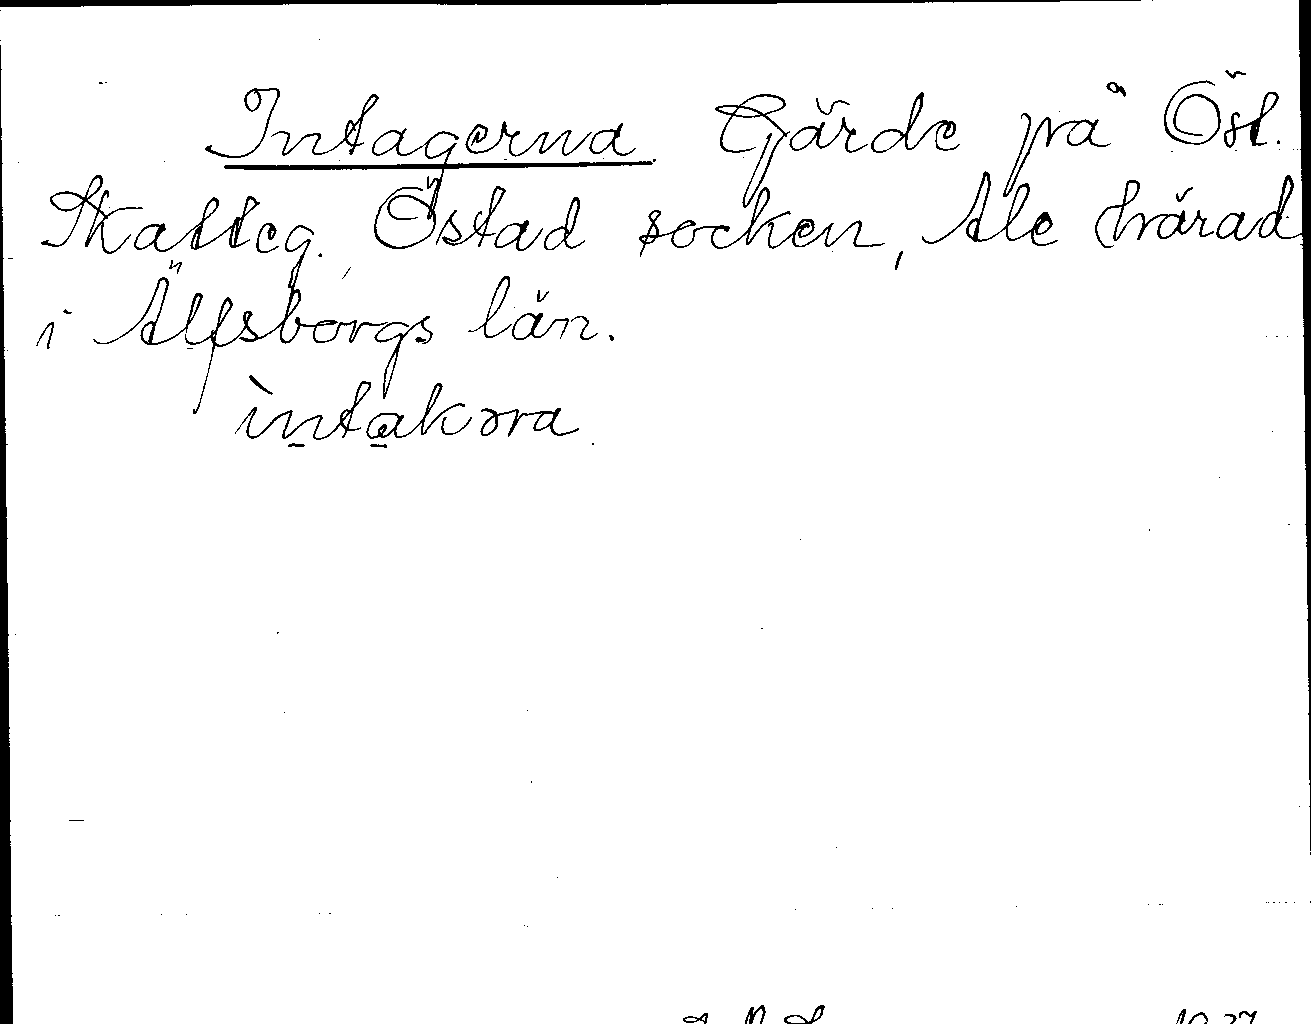 Intagerna Gärde på Öst.
Skatteg. Östad socken, Ale härad
i Älfsborgs län.
ìntakəra